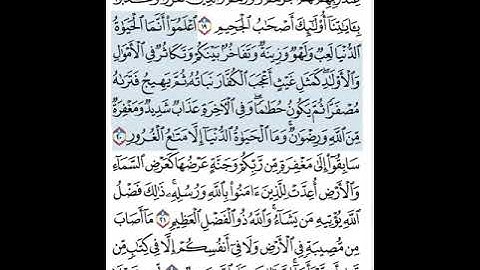 بِـَٔايَـٰتِنَآ أُو۟لَـٰٓئِكَ أَصْحَـٰبُ ٱلْجَحِيمِ ١٩ ٱعْلَمُوٓا۟ أَنَّمَا ٱلْحَيَوٰةُ
ٱلدُّنْيَا لَعِبٌ وَلَهْوٌ وَزِينَةٌ وَتَفَاخُرٌۢ بَيْنَكُمْ وَتَكَاثُرٌ فِى ٱلْأَمْوَٰلِ
وَٱلْأَوْلَـٰدِ ۖ كَمَثَلِ غَيْثٍ أَعْجَبَ ٱلْكُفَّارَ نَبَاتُهُۥ ثُمَّ يَهِيجُ فَتَرَىٰهُ
مُصْفَرًّا ثُمَّ يَكُونُ حُطَـٰمًا ۖ وَفِى ٱلْـَٔاخِرَةِ عَذَابٌ شَدِيدٌ وَمَغْفِرَةٌ
مِّنَ ٱللَّهِ وَرِضْوَٰنٌ ۚ وَمَا ٱلْحَيَوٰةُ ٱلدُّنْيَآ إِلَّا مَتَـٰعُ ٱلْغُرُورِ ٢٠
سَابِقُوٓا۟ إِلَىٰ مَغْفِرَةٍ مِّن رَّبِّكُمْ وَجَنَّةٍ عَرْضُهَا كَعَرْضِ ٱلسَّمَآءِ
وَٱلْأَرْضِ أُعِدَّتْ لِلَّذِينَ ءَامَنُوا۟ بِٱللَّهِ وَرُسُلِهِۦ ۚ ذَٰلِكَ فَضْلُ
ٱللَّهِ يُؤْتِيهِ مَن يَشَآءُ ۚ وَٱللَّهُ ذُو ٱلْفَضْلِ ٱلْعَظِيمِ ٢١ مَآ أَصَابَ
مِن مُّصِيبَةٍ فِى ٱلْأَرْضِ وَلَا فِىٓ أَنفُسِكُمْ إِلَّا فِى كِتَـٰبٍ مِّن